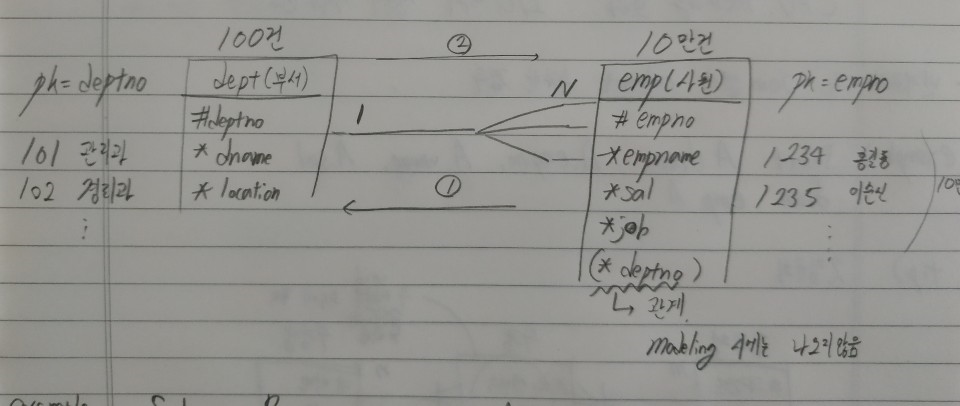 100건 ② 10만건
pk = deptno dept(부서) N emp(사원) pk = empno
#deptno 1 # empno
101 관리과 * dname *empname 1234 홍길동
102 경리과 * location ① *sal 1235 이순신 10만
⋮ *job ⋮
(* deptno)
↳ 관계.
modeling 시에는 나오지않음